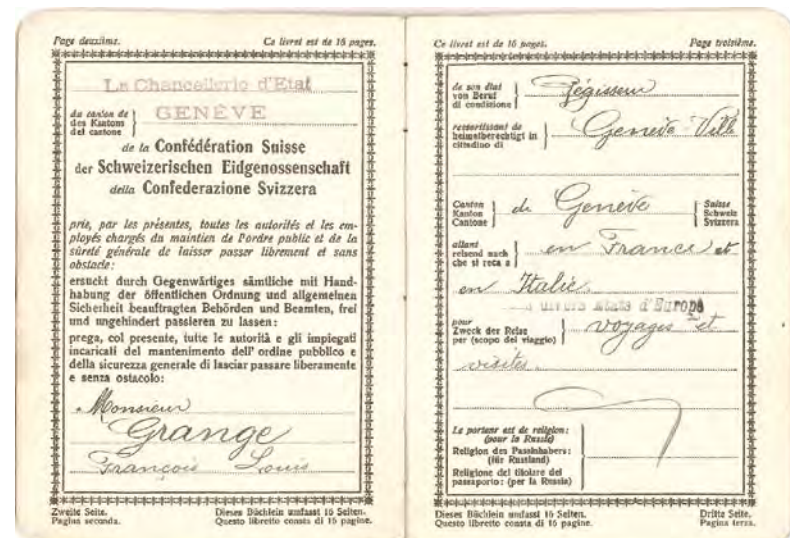 Page deuxième. Ce livret est de 16 pages.
La Chancellerie d'Etat
du canton de
des Kantons
del cantone
GENÈVE
de la Confédération Suisse
der Schweizerischen Eidgenossenschaft
della Confederazione Svizzera
prie, par les présentes, toutes les autorités et les em-
ployés chargés du maintien de l'ordre public et de la
sûreté générale de laisser passer librement et sans
obstacle:
ersucht durch Gegenwärtiges sämtliche mit Hand-
habung der öffentlichen Ordnung und allgemeinen
Sicherheit beauftragten Behörden und Beamten, frei
und ungehindert passieren zu lassen:
prega, col presente, tutte le autorità e gli impiegati
incaricati del mantenimento dell' ordine pubblico e
della sicurezza generale di lasciar passare liberamente
e senza ostacolo:
Monsieur
Grange
François Louis
Zweite Seite. Dieses Büchlein umfasst 16 Seiten.
Pagina seconda. Questo libretto consta di 16 pagine.
Ce livret est de 16 pages. Page troisième.
de son état
von Beruf
di condizione
Régisseur
ressortissant de
heimatberechtigt in
cittadino di
Genève Ville
Canton
Kanton
Cantone
de Genève
Suisse
Schweiz
Svizzera
allant
reisend nach
che si reca a
en France et
en Italie.
divers Etats d'Europe
pour
Zweck der Reise
per (scopo del viaggio)
voyages et
visites.
Le porteur est de religion:
(pour la Russie)
Religion des Passinhabers:
(für Russland)
Religione del titolare del
passaporto: (per la Russia)
Dieses Büchlein umfasst 16 Seiten. Dritte Seite.
Questo libretto consta di 16 pagine. Pagina terza.